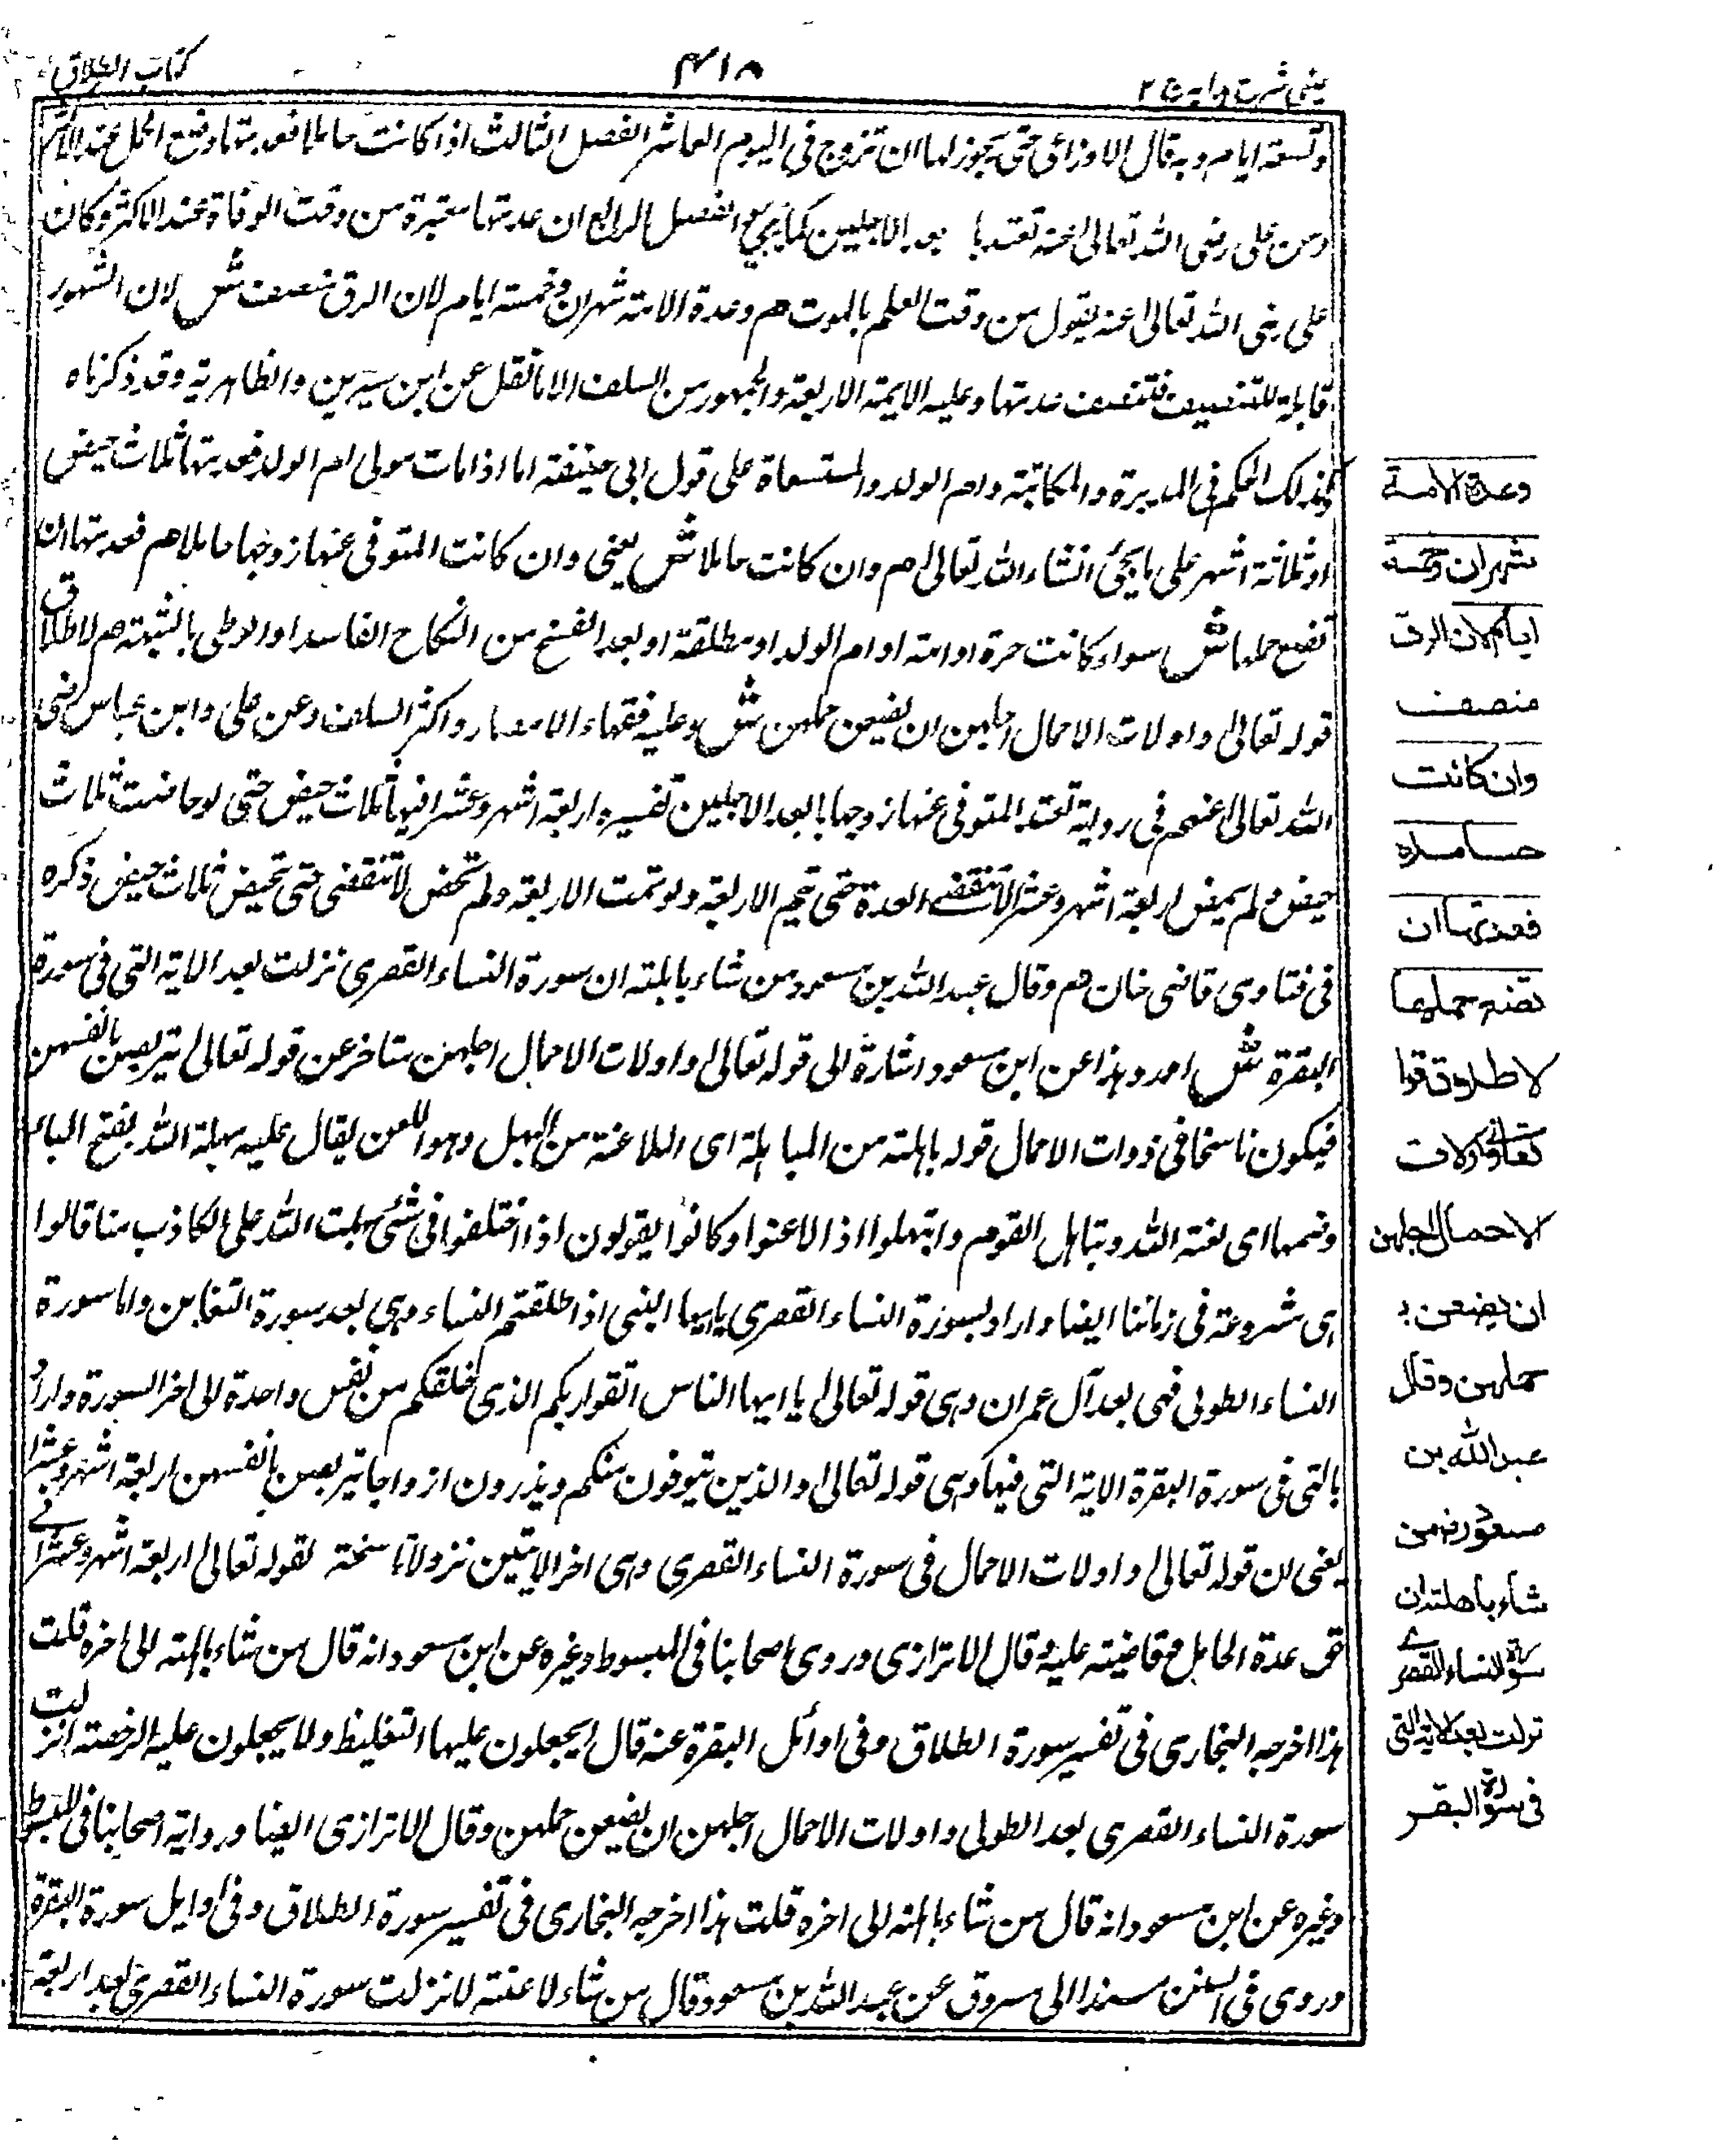 كتاب الطلاق
٤١٨
عينى شرح هدايه ج ٢
وتسعة ايام وبه قال الاوزاعى حتى يجوز لها ان تزوج فى اليوم العاشر الفصل الثالث اذا كانت حاملا فعدتها وضع الحمل عند الاكثر
وعن على رضى الله تعالى عنه تعتد بابعد الاجلين كما يجئ الفصل الرابع ان عدتها معتبرة من وقت الوفاة عند الاكثر وكان
على رضى الله تعالى عنه يقول من وقت العلم بالموت هم وعدة الامة شهران وخمسة ايام لان الرق منصف ش لان الشهور
قابلة للتنصيف فتنصف عدتها وعليه الايمة الاربعة والجمهور من السلف الا ما نقل عن ابن سيرين والظاهرية وقد ذكرناه
وكذلك الحكم فى المدبرة والمكاتبة وام الولد والمستسعاة على قول ابى حنيفة اما اذا مات مولى ام الولد فعدتها ثلاث حيض
او ثلاثة اشهر على ما يجئ انشاء الله تعالى هم وان كانت حاملا ش يعنى وان كانت المتوفى عنها زوجها حاملا هم فعدتها ان
تضع حملها ش سواء كانت حرة او امة او ام الولد او مطلقة او بعد الفسخ من النكاح الفاسد او الوطى بالشبهة هم لاطلاق
قوله تعالى واولات الاحمال اجلهن ان يضعن حملهن ش وعليه فقهاء الامصار واكثر السلف وعن على وابن عباس رضى
الله تعالى عنهم فى رواية تعتد المتوفى عنها زوجها بابعد الاجلين تفسيره اربعة اشهر وعشرا فيها ثلاث حيض حتى لو حاضت ثلاث
حيض ولم يمض اربعة اشهر وعشر لا تنقضے العدة حتى تتم الاربعة ولو تمت الاربعة ولم تحض لا تنقضى حتى تحيض ثلاث حيض ذكره
فى فتاوى قاضى خان هم وقال عبد الله بن مسعود من شاء باهلته ان سورة النساء القصرى نزلت بعد الاية التى فى سورة
البقرة ش اى وهذا عن ابن مسعود اشارة الى قوله تعالى واولات الاحمال اجلهن متاخر عن قوله تعالى يتربصن بانفسهن
فيكون ناسخا فى ذوات الاحمال قوله باهلته من المباهلة اى الملاعنة من البهل وهو اللعن يقال عليه بهلة الله بفتح الباء
وضمها اى لعنة الله وتباهل القوم وابتهلوا اذا لاعنوا وكانوا يقولون اذا اختلفوا فى شئ بهلت الله على الكاذب منا قالوا
هى مشروعة فى زماننا ايضا واراد بسورة النساء القصرى يا ايها النبى اذا طلقتم النساء وهى بعد سورة التغابن واما سورة
النساء الطولى فهى بعد آل عمران وهى قوله تعالى يا ايها الناس اتقوا ربكم الذى خلقكم من نفس واحدة الى اخر السورة واراد
بالتى فى سورة البقرة الاية التى فيها وهى قوله تعالى والذين يتوفون منكم ويذرون ازواجا يتربصن بانفسهن اربعة اشهر وعشرا
يعنى ان قوله تعالى واولات الاحمال فى سورة النساء القصرى وهى اخر الايتين نزولا ناسخة لقوله تعالى اربعة اشهر وعشرا فے
حق عدة الحامل وقاضية عليه وقال الاترازى وروى اصحابنا فى المبسوط وغيره عن ابن مسعود انه قال من شاء باهلته الى اخره قلت
هذا اخرجه البخارى فى تفسير سورة الطلاق وفى اوائل البقرة عنه قال ايجعلون عليها التغليظ ولا يجعلون عليه الرخصة انزلت
سورة النساء القصرى بعد الطولى واولات الاحمال اجلهن ان يضعن حملهن وقال الاترازى ايضا ورواية اصحابنا فى المبسوط
وغيره عن ابن مسعود انه قال من شاء باهلته الى اخره قلت هذا اخرجه البخارى فى تفسير سورة الطلاق وفى اوايل سورة البقرة
وروى فى السنن مسندا الى مسروق عن عبد الله بن مسعود قال من شاء لاعنته لانزلت سورة النساء القصرى بعد اربعة
وعدة الامة
شهران وخمسة
ايام لان الرق
منصف
وان كانت
حاملا
فعدتها ان
تضع حملها
لاطلاق قوله
تعالے واولات
الاحمال اجلهن
ان يضعن
حملهن وقال
عبد الله بن
مسعود رض من
شاء باهلته ان
سورة النساء القصرے
نزلت بعد الاية التى
فى سورة البقر